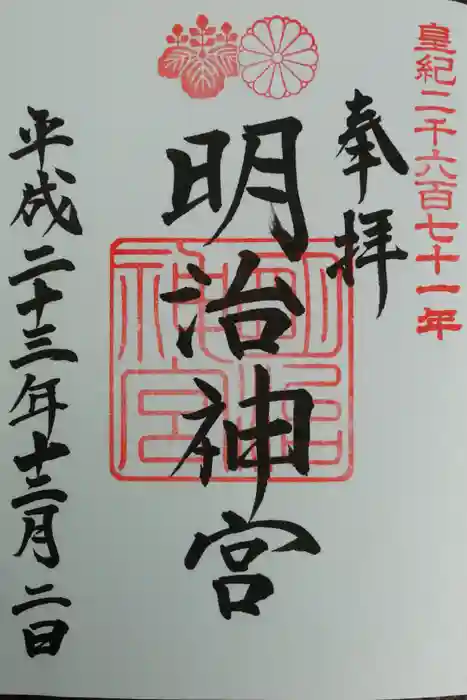 皇紀二千六百七十一年
奉拝
明治神宮
明治神宮
平成二十三年十二月二日